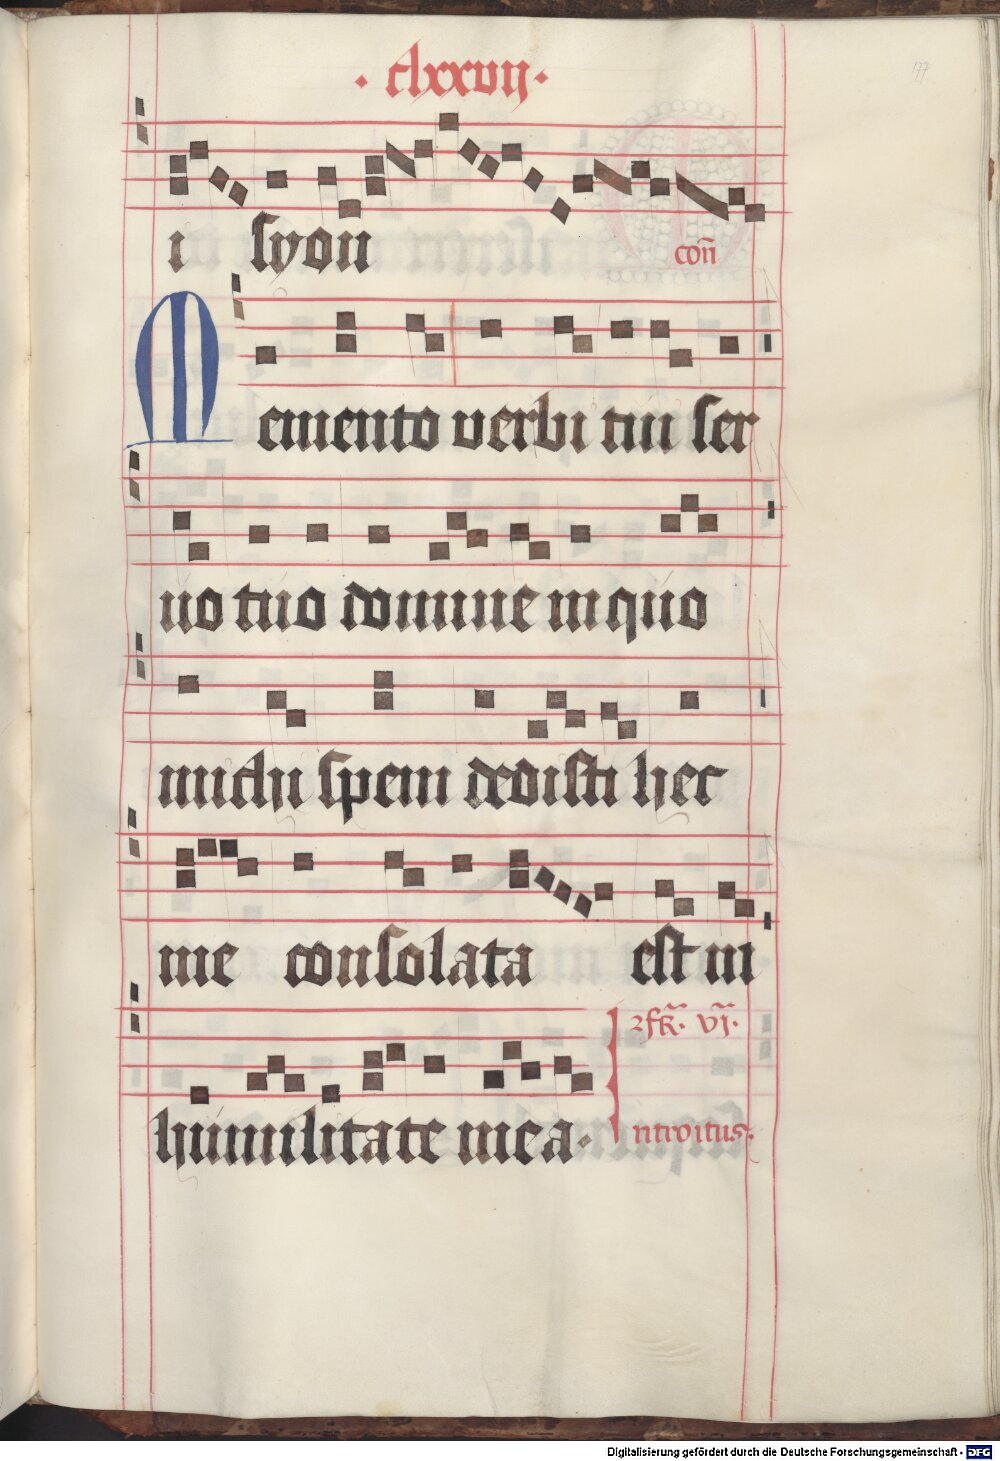 · clxxvij ·
177
i syon con̄
Memento verbi tui ser
uo tuo domine in quo
michi spem dedisti hec
me consolata est in
humilitate mea·
vj·
ntroitus·
Digitalisierung gefördert durch die Deutsche Forschungsgemeinschaft - DFG